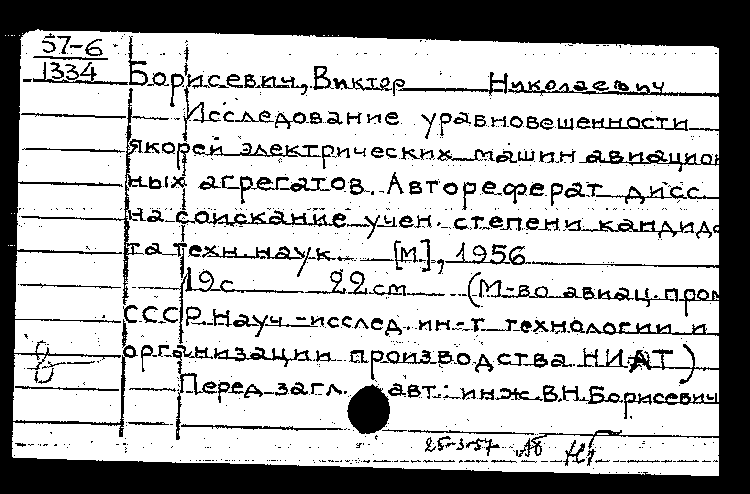 57-6
1334
Борисевич, Виктор Николаевич
Исследование уравновешенности
якорей электрических машин авиацион
ных агрегатов. Автореферат дисс.
на соискание учен. степени кандида
та техн. наук. [М], 1956
19с 22см (М-во авиац. пром
СССР. Науч.-исслед. ин-т технологии и
организации производства НИАТ)
Перед загл. авт.: инж. В.Н. Борисевич
25-3-57